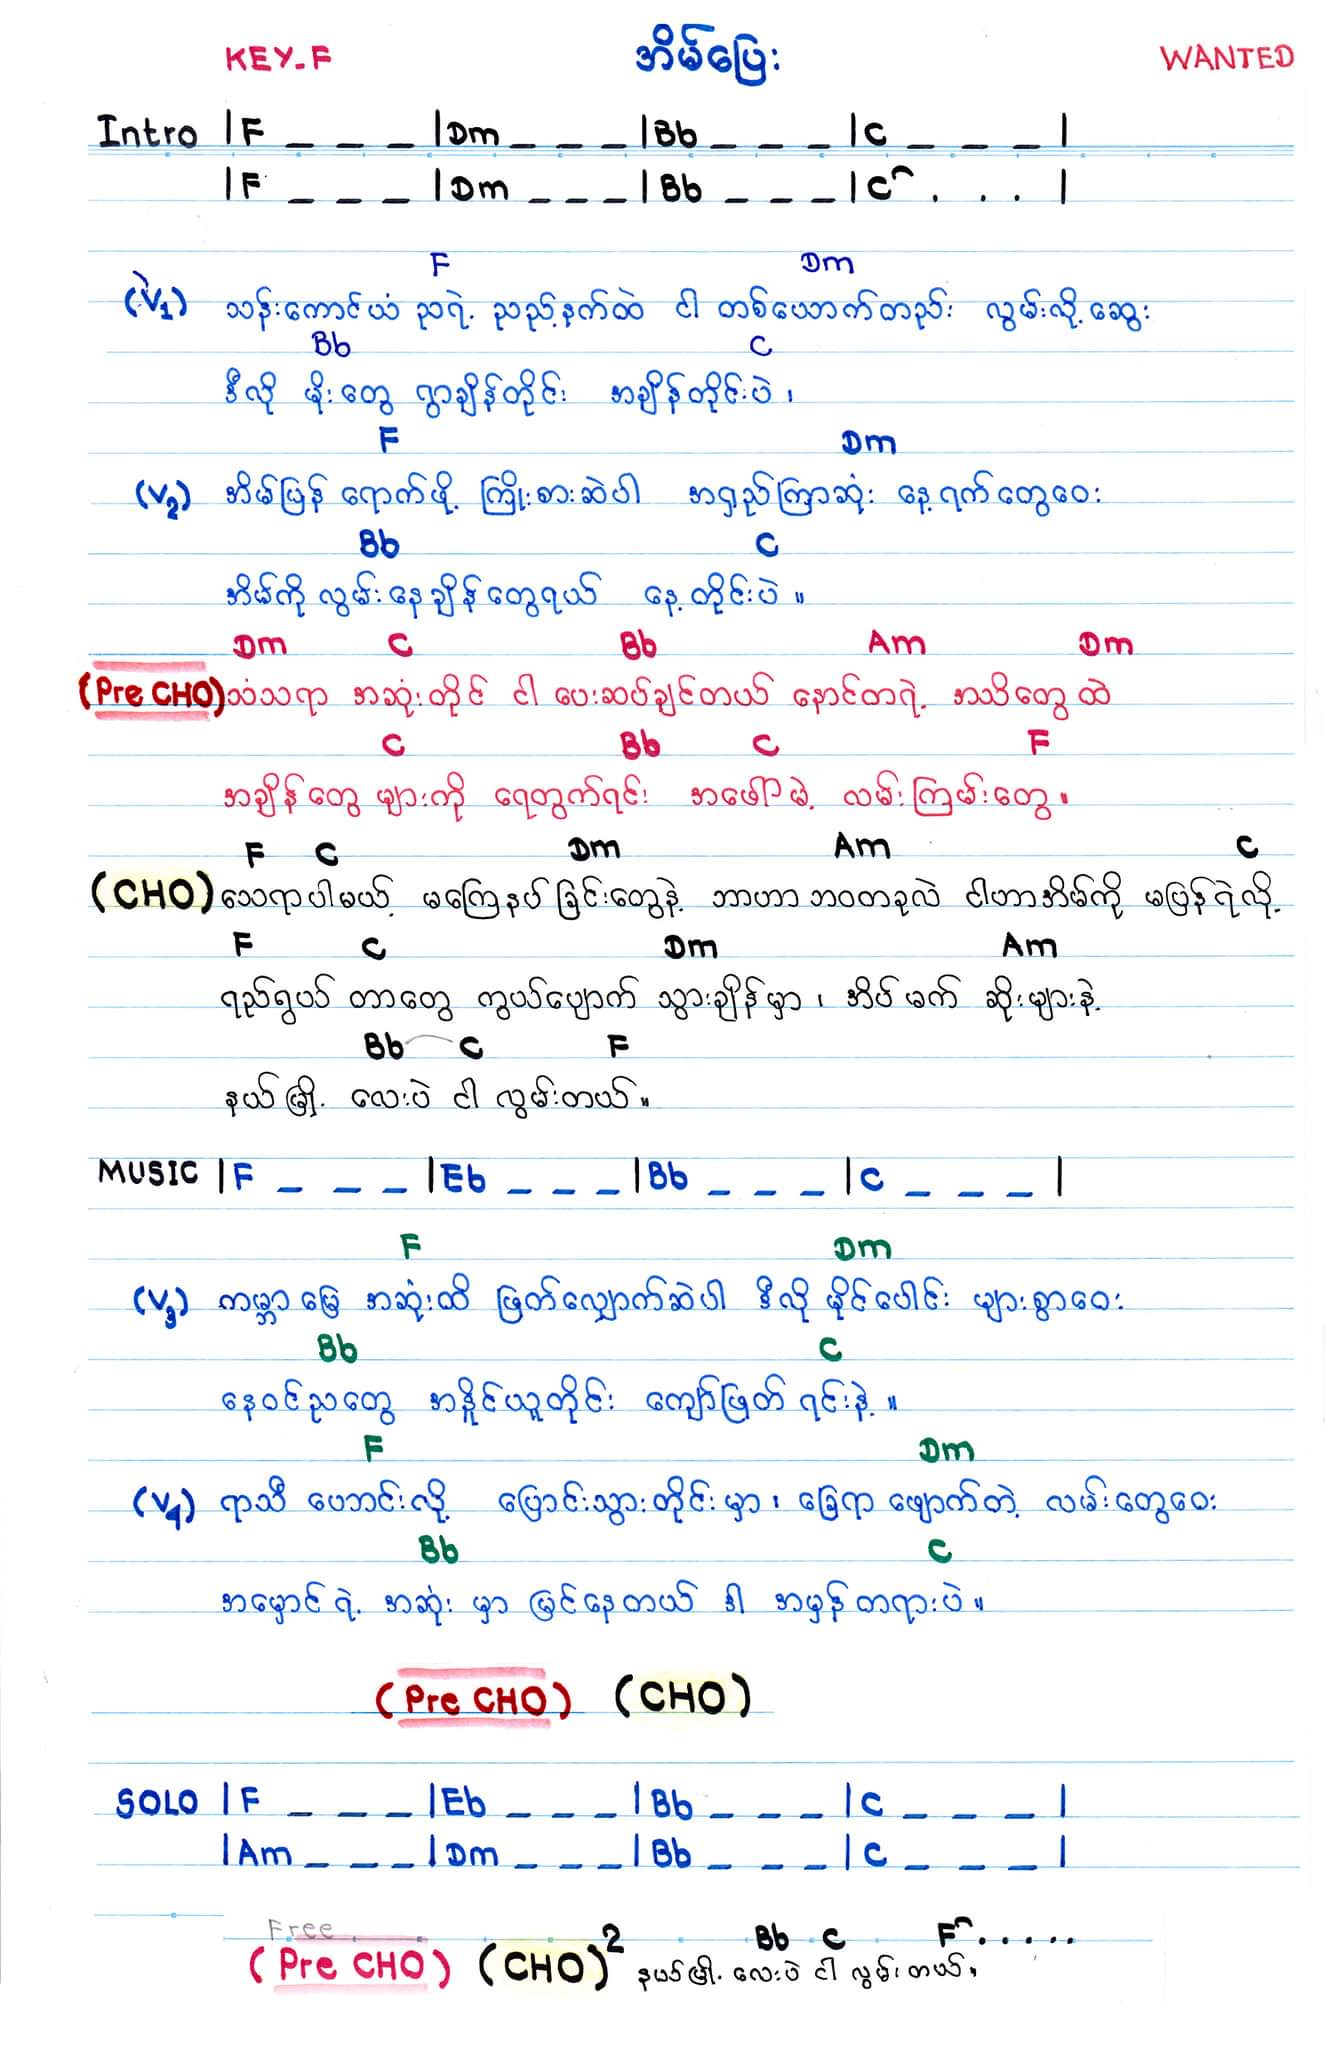 KEY-F အိမ်ပြေး WANTED
Intro |F _ _ _ |Dm _ _ _ |Bb _ _ _ |C _ _ _ |
|F _ _ _ |Dm _ _ _ |Bb _ _ _ |C^ . . . |
F Dm
(V1) သန်းကောင်ယံ ညရဲ့ ညည့်နက်ထဲ ငါ တစ်ယောက်တည်း လွမ်းလို့ဆွေး
Bb C
ဒီလို မိုးတွေ ရွာချိန်တိုင်း အချိန်တိုင်းပဲ ၊
F Dm
(V2) အိမ်ပြန် ရောက်ဖို့ ကြိုးစားဆဲပါ အရှည်ကြာဆုံး နေ့ရက်တွေဝေး
Bb C
အိမ်ကို လွမ်းနေချိန်တွေရယ် နေ့တိုင်းပဲ ။
Dm C Bb Am Dm
(Pre CHO) သံသရာ အဆုံးတိုင် ငါ ပေးဆပ်ချင်တယ် နောင်တရဲ့ အသိတွေထဲ
C Bb C F
အချိန်တွေ များကို ရေတွက်ရင်း အဖော်မဲ့ လမ်းကြမ်းတွေ ။
F C Dm Am C
(CHO) သေရာပါမယ့် မကြေနပ်ခြင်းတွေနဲ့ ဘာဟာ ဘဝတခုလဲ ငါဟာအိမ်ကို မပြန်ရဲလို့
F C Dm Am
ရည်ရွယ် တာတွေ ကွယ်ပျောက် သွားချိန်မှာ ၊ အိပ်မက် ဆိုးများနဲ့
Bb C F
နယ်မြို့ လေးပဲ ငါ လွမ်းတယ် ။
MUSIC |F _ _ _ |Eb _ _ _ |Bb _ _ _ |C _ _ _ |
F Dm
(V3) ကမ္ဘာမြေ အဆုံးထိ ဖြတ်လျှောက်ဆဲပါ ဒီလို မိုင်ပေါင်း များစွာဝေး
Bb C
နေဝင်ညတွေ အနှိုင်ယူတိုင်း ကျော်ဖြတ်ရင်းနဲ့ ။
F Dm
(V4) ရာသီ ဟောင်းလို့ ပြောင်းသွားတိုင်းမှာ ၊ ခြေရာ ဖျောက်တဲ့ လမ်းတွေဝေး
Bb C
အမှောင်ရဲ့ အဆုံး မှာ မြင်နေတယ် ဒါ အမှန်တရားပဲ ။
(Pre CHO) (CHO)
SOLO |F _ _ _ |Eb _ _ _ |Bb _ _ _ |C _ _ _ |
|Am _ _ _ |Dm _ _ _ |Bb _ _ _ |C _ _ _ |
Free Bb C F^ . . . . .
(Pre CHO) (CHO)2 နယ်မြို့ လေးပဲ ငါ လွမ်းတယ် ။